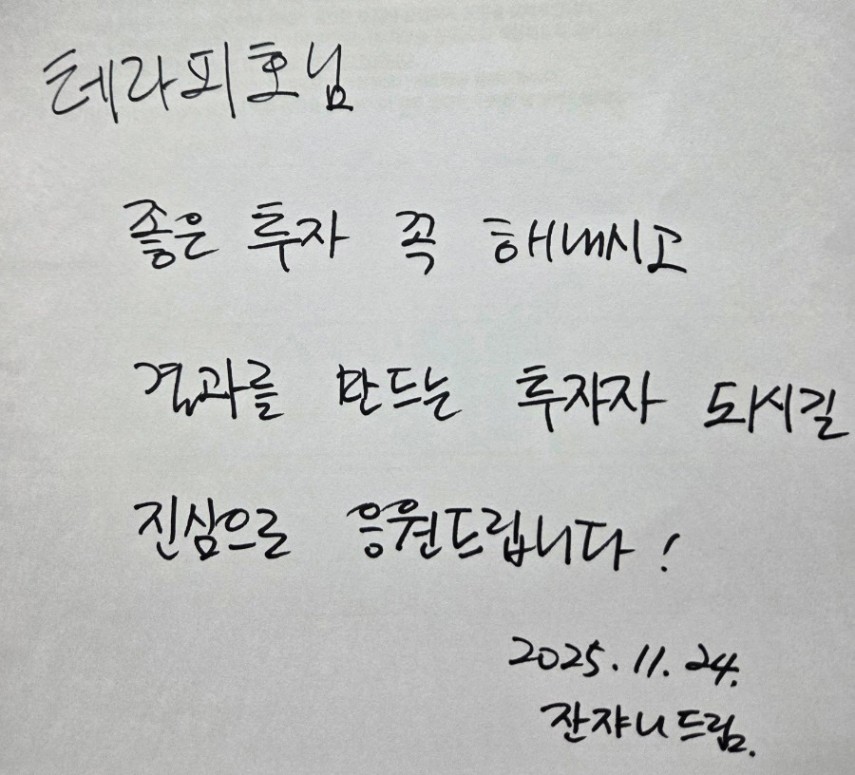 테라피호님
좋은 투자 꼭 해내시고
결과를 만드는 투자자 되시길
진심으로 응원드립니다!
2025. 11. 24.
잔쟈니 드림.